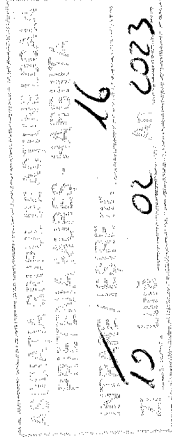 ASOCIAȚIA GRUPUL DE ACȚIUNE LOCALĂ
PRIETENIA MUREȘ - HARGHITA
INTRARE / IEȘIRE nr. 16
Zi 10 Lună 02 An 2023